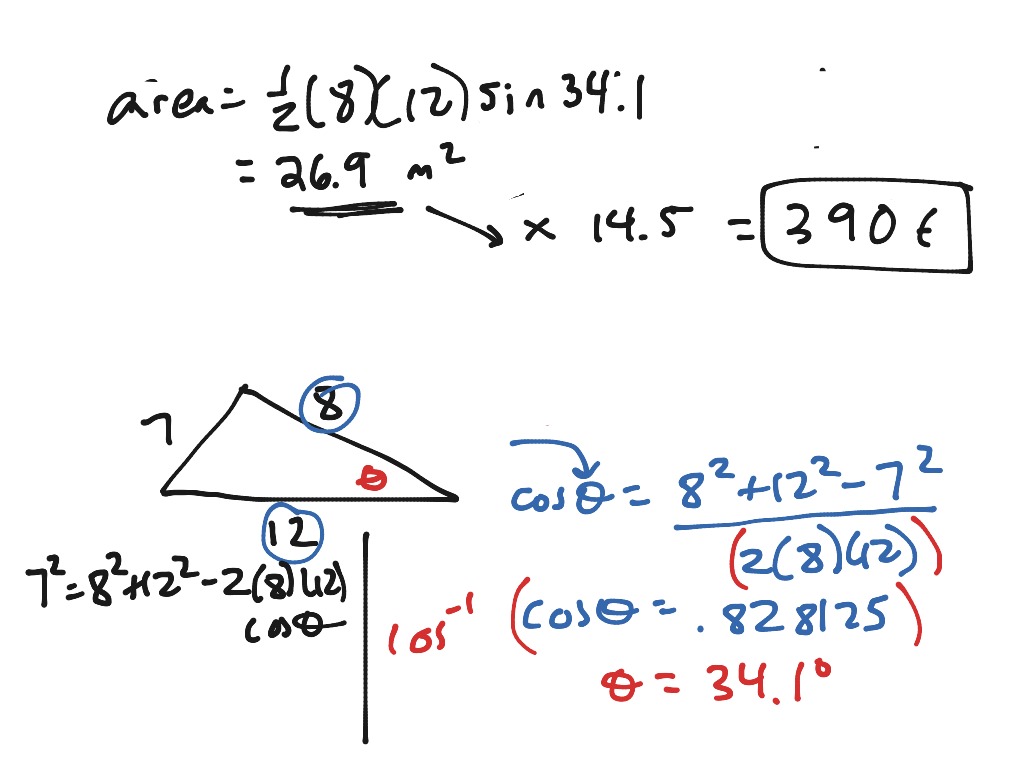 area = 1/2 (8)(12) sin 34.1
= 26.9 m²
x 14.5 = 390 €
7
8
θ
12
7² = 8² + 12² - 2(8)(12)
cosθ
cosθ = 8² + 12² - 7²
(2(8)(12))
cos⁻¹ (cosθ = .828125)
θ = 34.1°